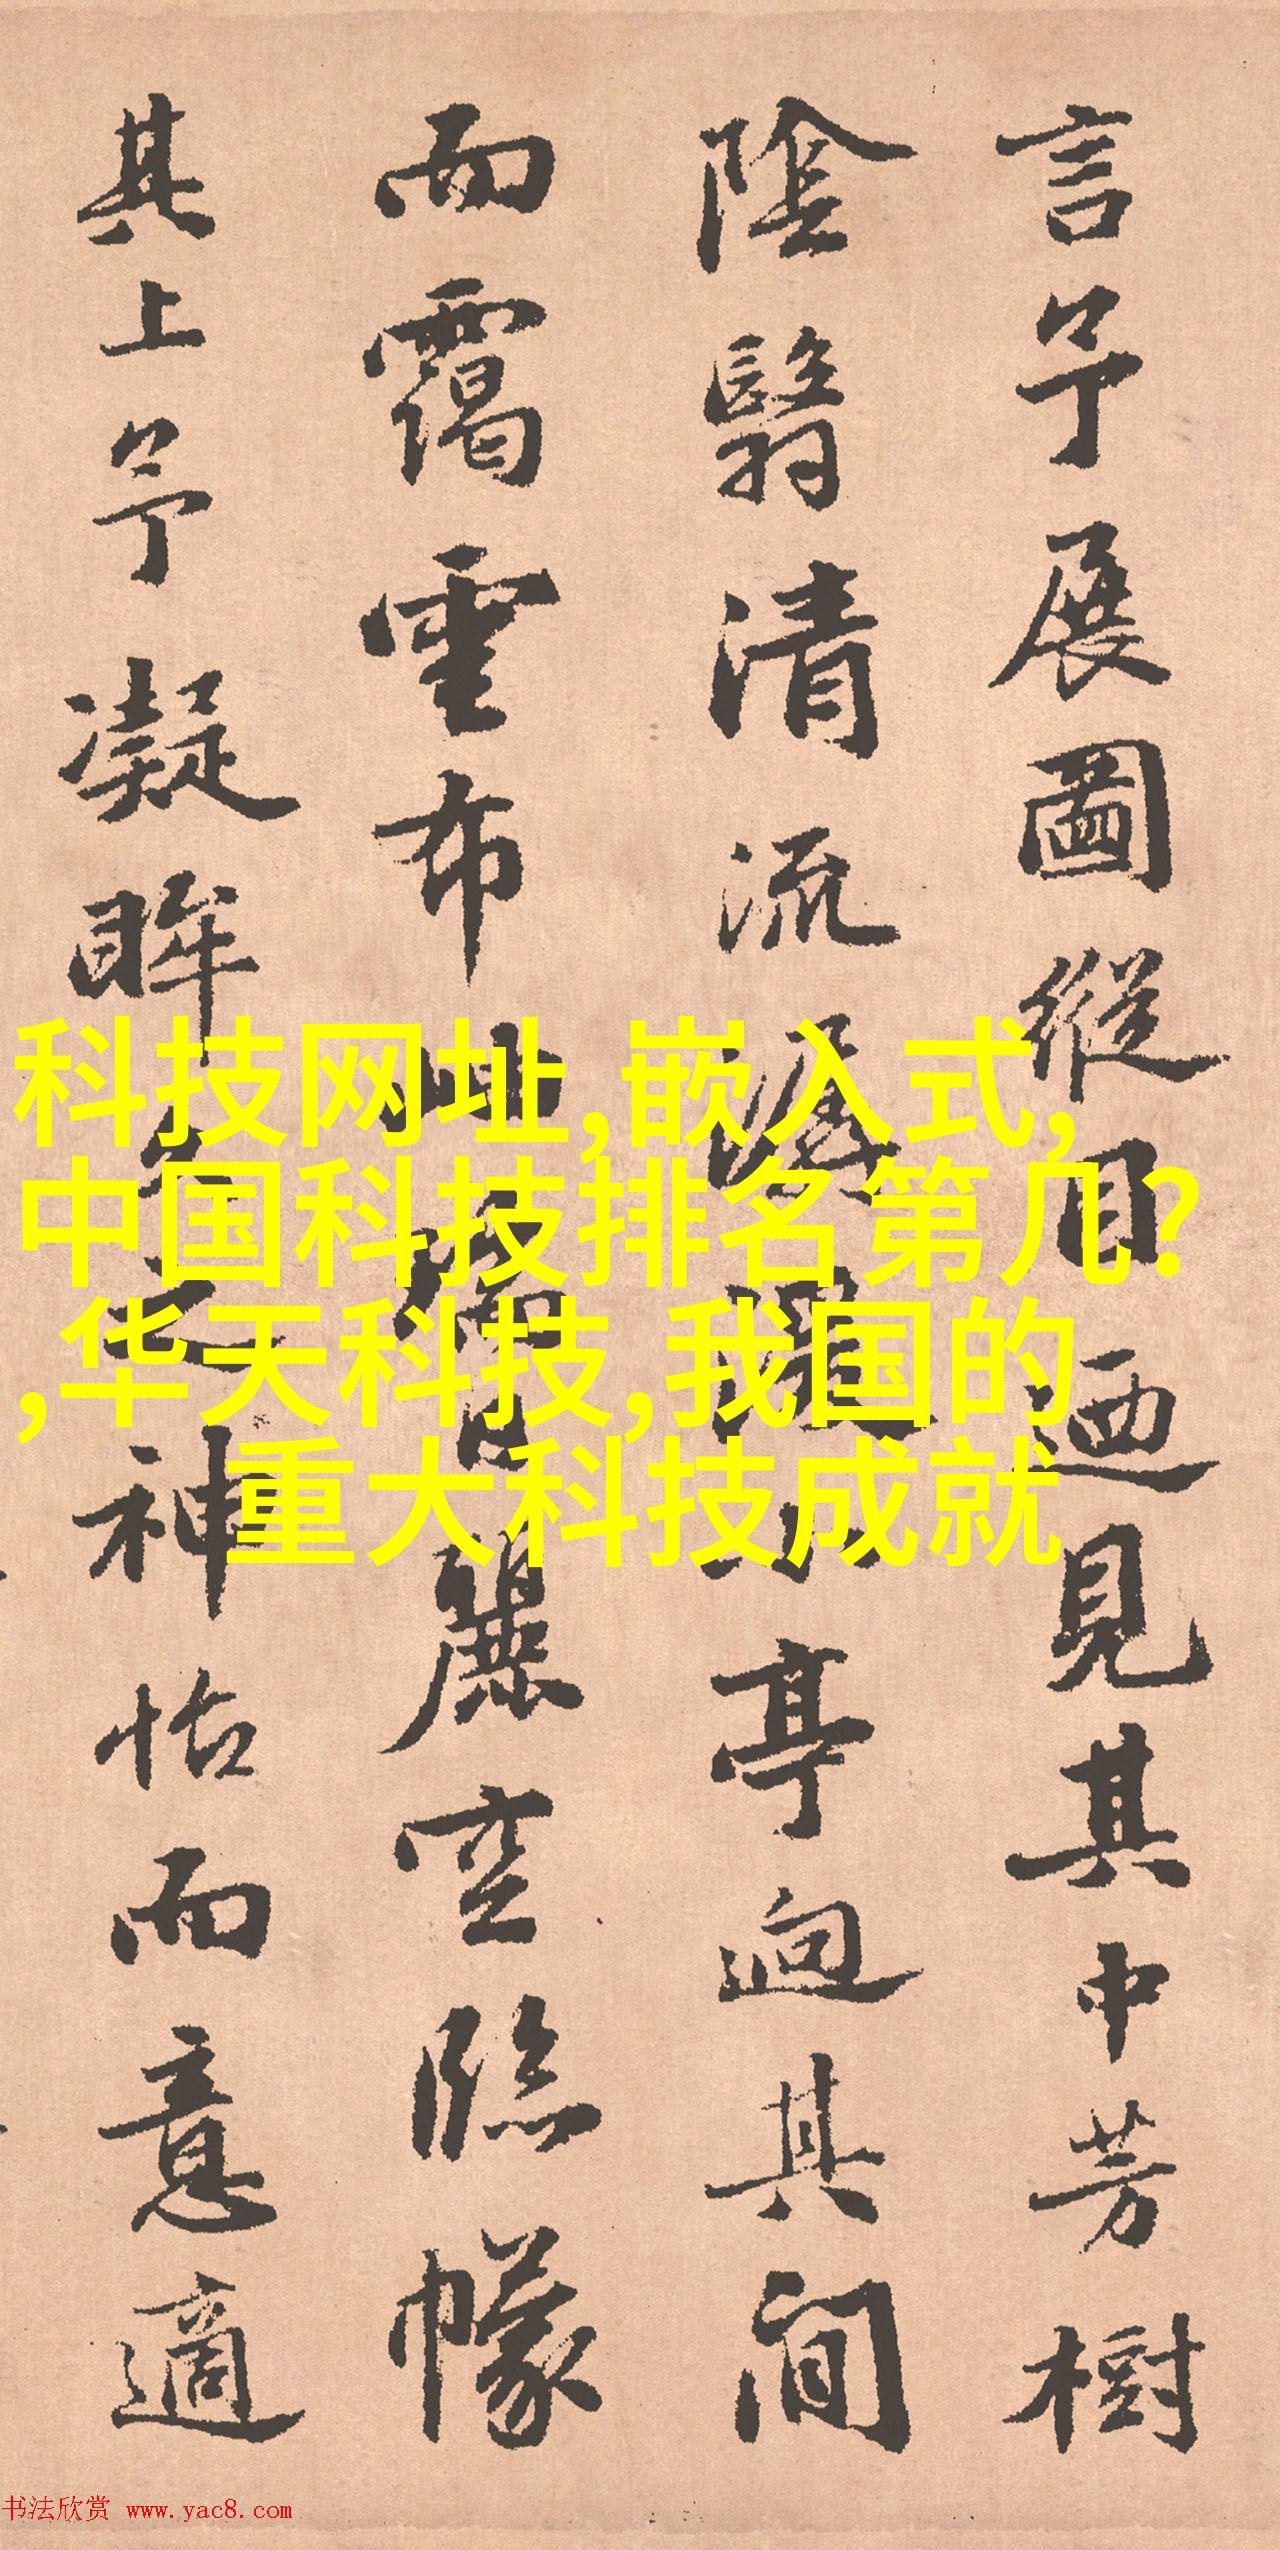 言予展圖縱目迺見其中芳樹
陰翳清流潺湲小亭迥其間
而靄雲布日麗空臨幪
其上予凝眸久之神怡而意適
科技网址,嵌入式,
中国科技排名第几?
,华天科技,我国的
重大科技成就
书法欣赏 www.yac8.com